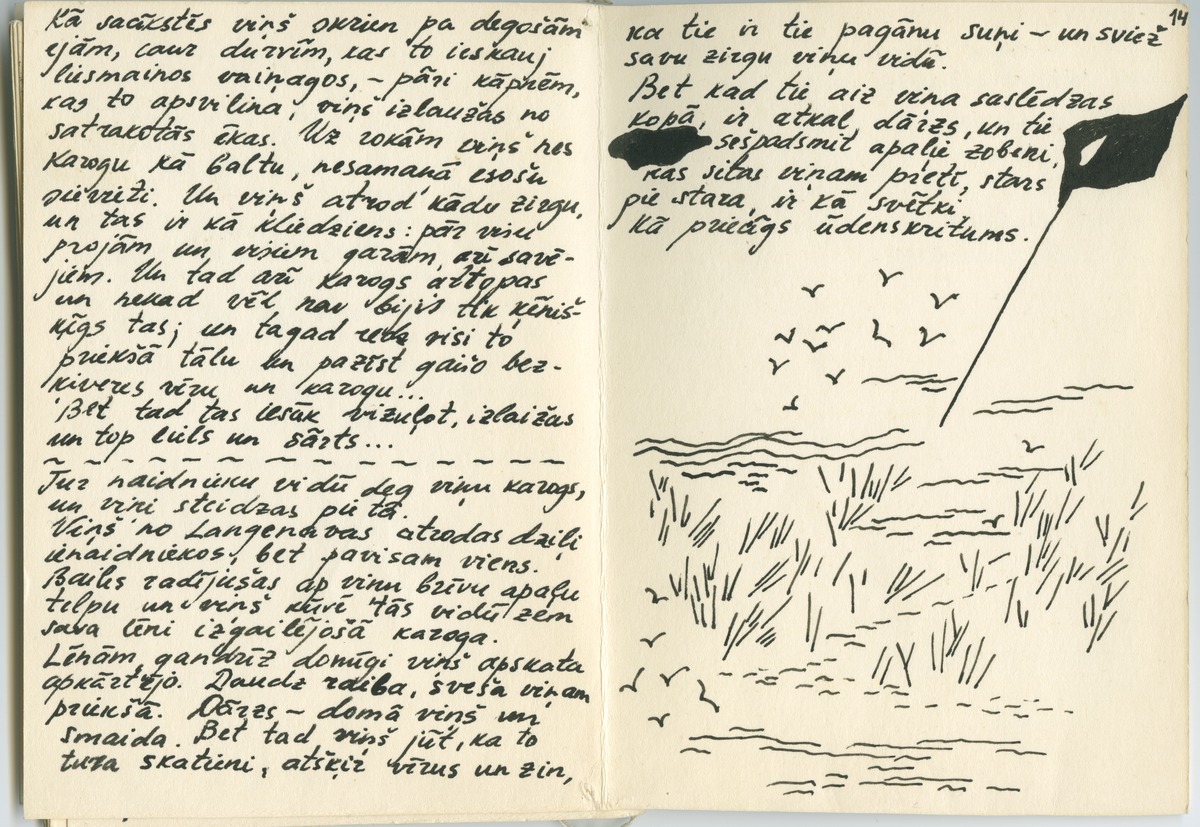 Kā sacīkstēs viņš skrien pa degošām
ejām, caur durvīm, kas to ieskauj
liesmainos vaiņagos, – pāri kāpnēm,
kas to apsvilina, viņš izlaužas no
satrakotās ēkas. Uz rokām viņš nes
karogu kā baltu, nesamaņā esošu
sievieti. Un viņš atrod kādu zirgu,
un tas ir kā kliedziens: pār visu
projām un visiem garām, arī savē-
jiem. Un tad arī karogs attopas
un nekad vēl nav bijis tik ķēniš-
ķīgs tas; un tagad redz visi to
priekšā tālu un pazīst gaišo bez-
ķiveres vīru un karogu...
Bet tad tas iesāk vizuļot, izlaižas
un top liels un sārts...
Tur naidnieku vidū deg viņu karogs,
un viņi steidzas pie tā.
Viņš no Langenavas atrodas dziļi
ienaidniekos, bet pavisam viens.
Bailes radījušas ap viņu brīvu apaļu
telpu un viņš stāv tās vidū zem
sava lēni izgailējošā karoga.
Lēnām, gandrīz domīgi viņš apskata
apkārtējo. Daudz raiba, sveša viņam
priekšā. Dārzs – domā viņš un
smaida. Bet tad viņš jūt, ka to
tura skatieni, atšķir vīrus un zin,
14
ka tie ir tie pagānu suņi – un sviež
savu zirgu viņu vidū.
Bet kad tie aiz viņa saslēdzas
kopā, ir atkal dārzs, un tie
sešpadsmit apaļie zobeni,
kas sitas viņam pretī, stars
pie stara, ir kā svētki.
Kā priecīgs ūdenskritums.